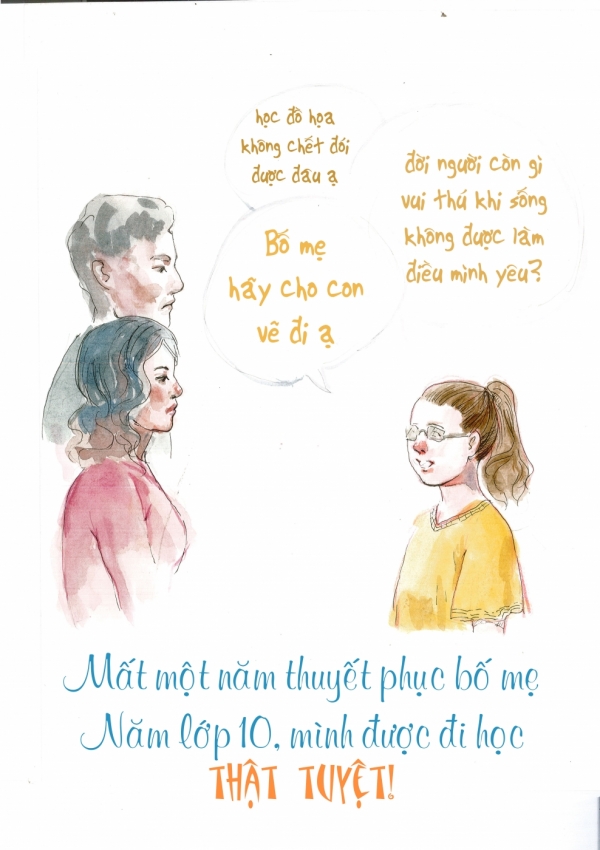 học đồ họa
không chết đói
được đâu ạ
Bố mẹ
hãy cho con
vẽ đi ạ
đời người còn gì
vui thú khi sống
không được làm
điều mình yêu?
Mất một năm thuyết phục bố mẹ
Năm lớp 10, mình được đi học
THẬT TUYỆT!